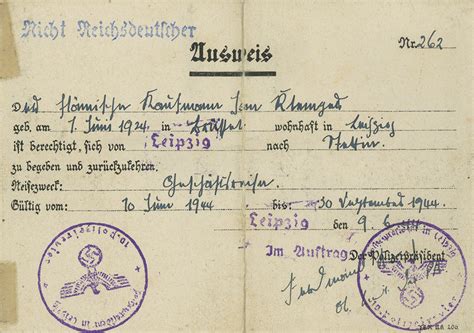 Nicht Reichsdeutscher
Ausweis
Nr. 262
Der flämische Kaufmann Jean
geb. am 1. Juni 1924 in Brüssel wohnhaft in Leipzig
ist berechtigt, sich von Leipzig nach Stettin
zu begeben und zurückzukehren.
Reisezweck: Geschäftsreise.
Gültig vom: 10 Juni 1944 bis: 30 September 1944
Leipzig den 9. 6.
Im Auftrag Der Polizeipräsident
10. Polizeirevier
Polizeipräsident in Leipzig